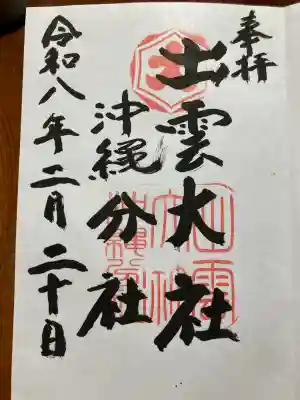 奉拝
出雲大社
沖縄分社
令和八年二月二十日